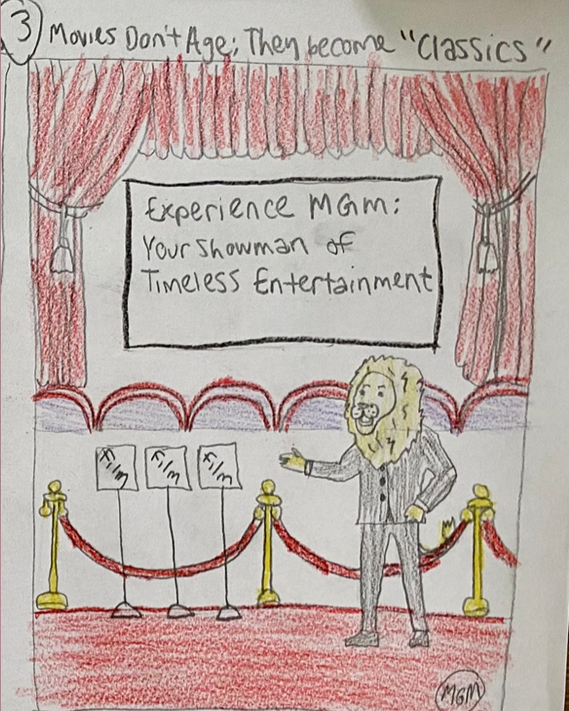 3 Movies Don't Age; They become "Classics"
Experience MGM:
Your Showman of
Timeless Entertainment
Film Film Film
MGM